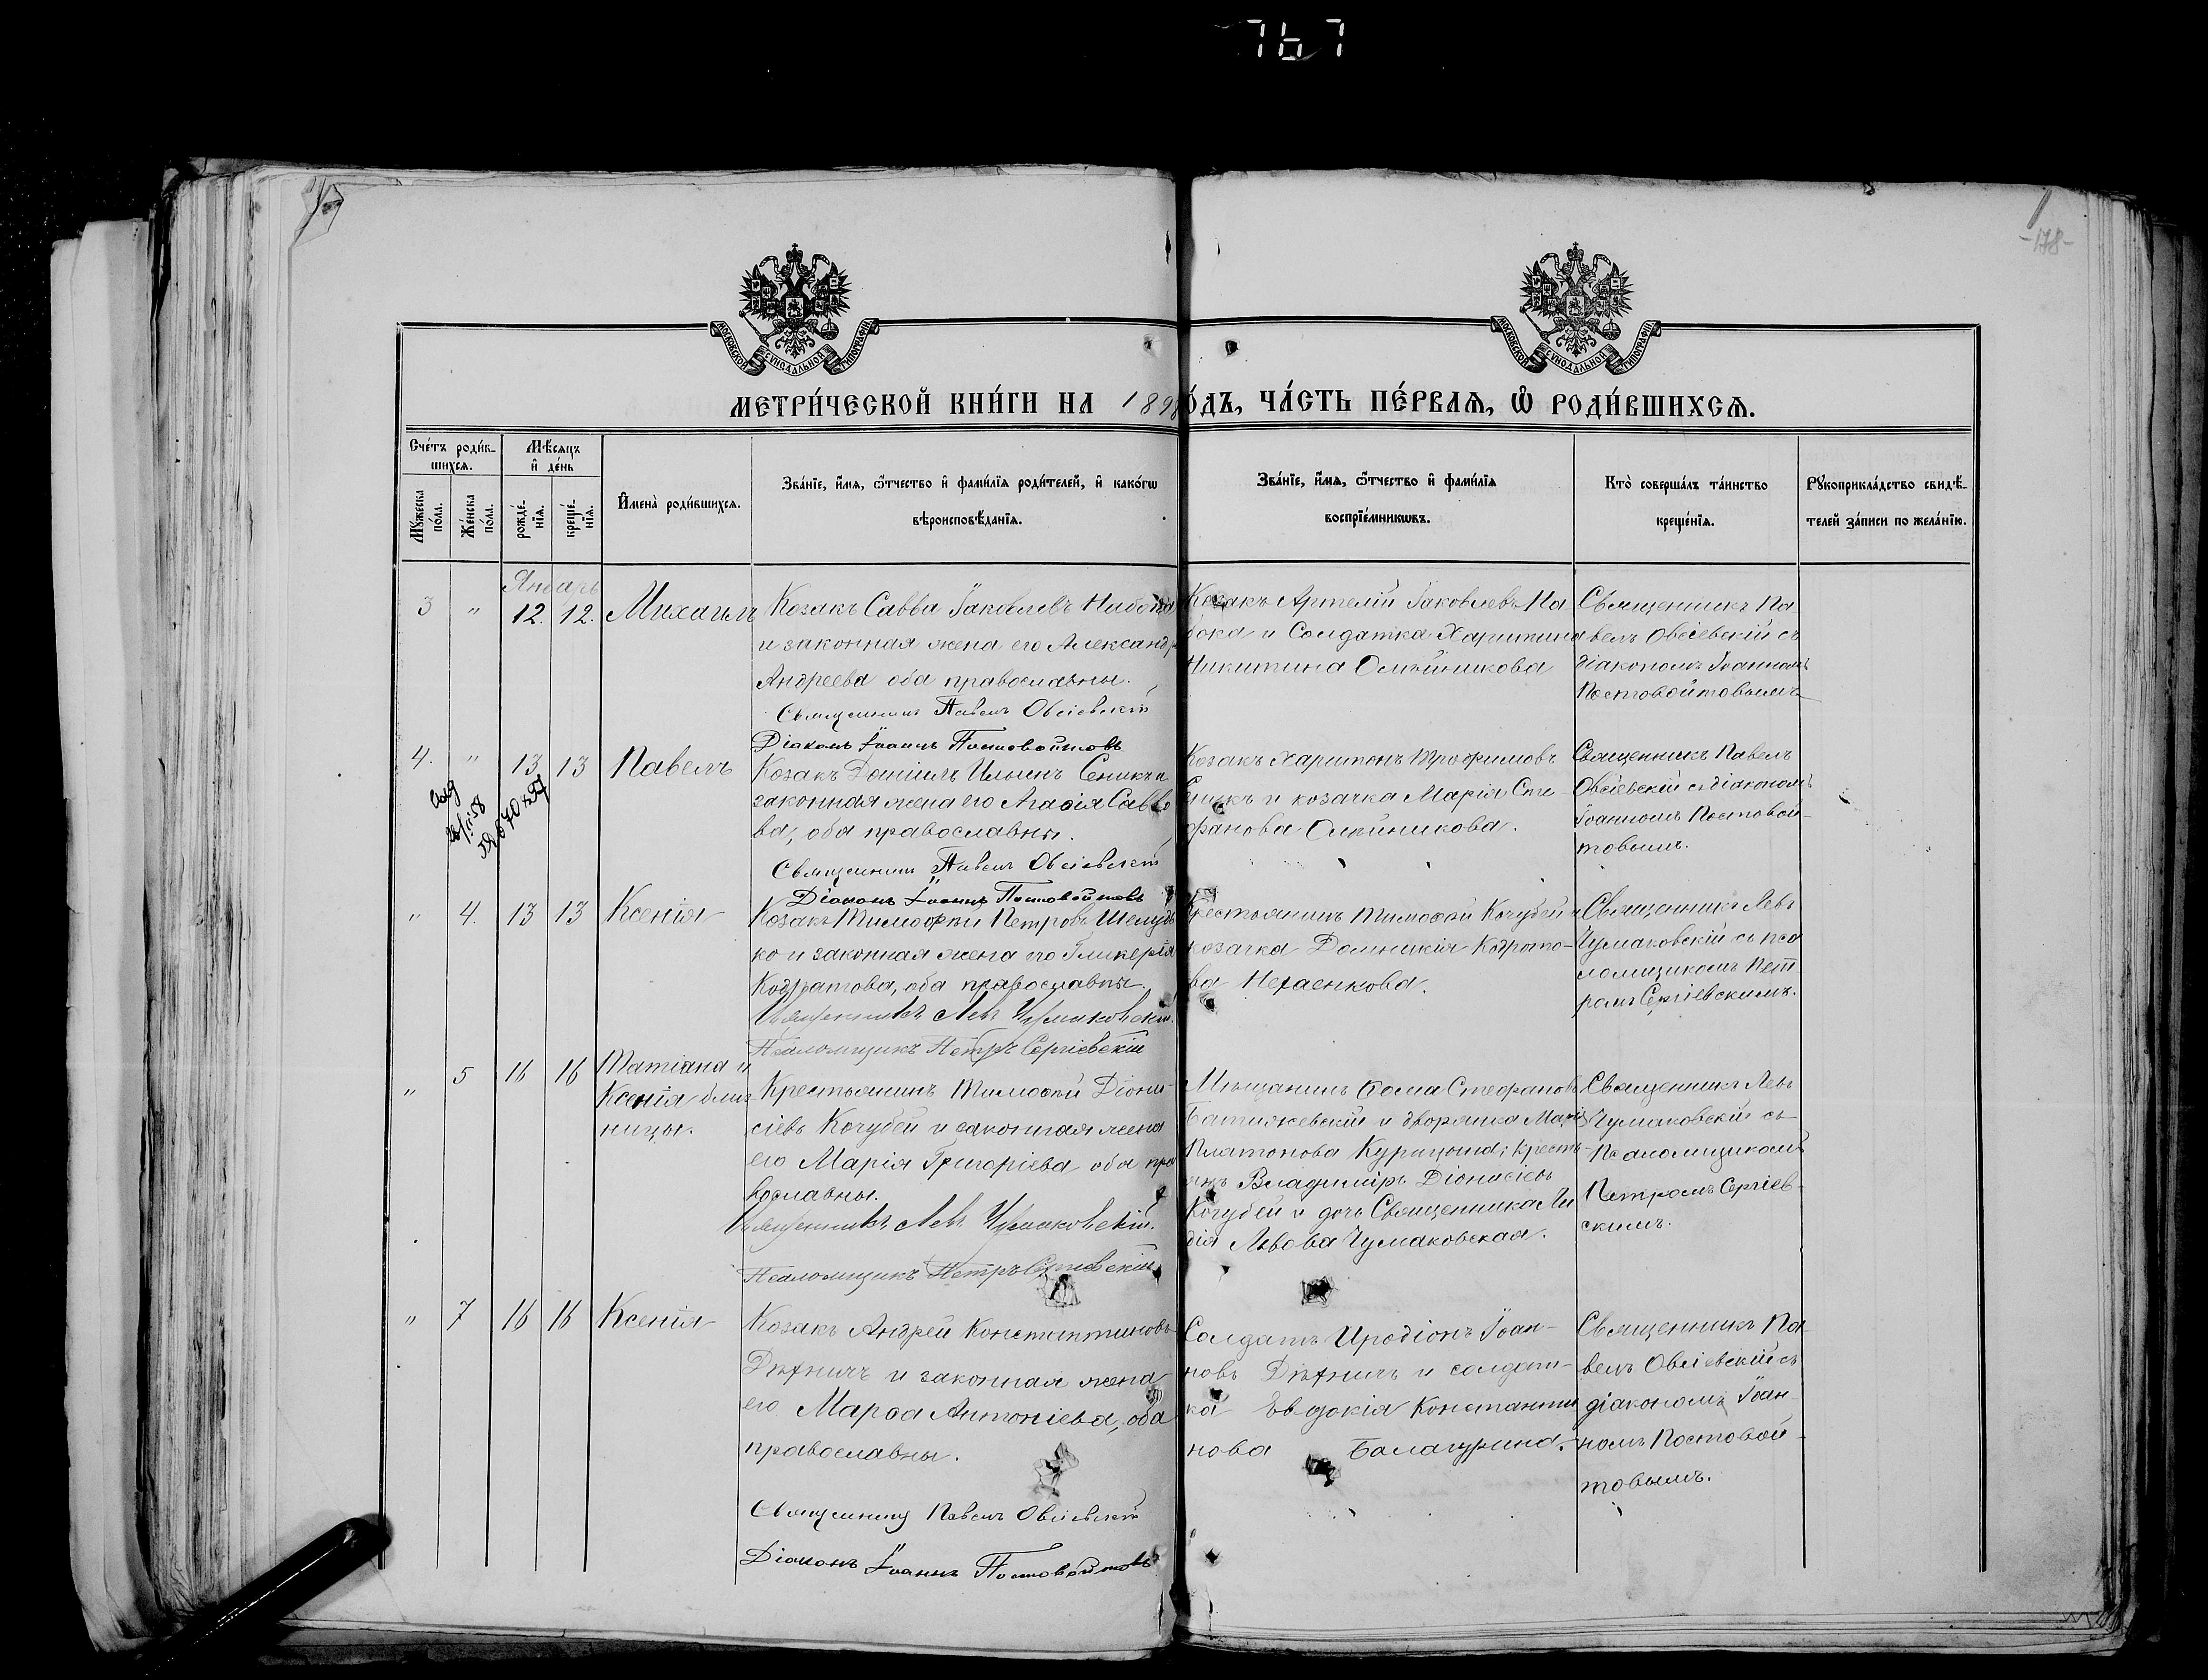 767
-178-
МОСКОВСКОЙ СѴНОДАЛЬНОЙ ТИПОГРАФІИ
МОСКОВСКОЙ СѴНОДАЛЬНОЙ ТИПОГРАФІИ
МЕТРИ́ЧЕСКОЙ КНИ́ГИ НА 189 О́ДЪ, ЧА́СТЬ ПЕ́РВАѦ, Ѽ РОДИ́ВШИХСѦ.
Сче́тъ роди́в-
шихсѧ.
Мѣ́сѧцъ
и҆ де́нь
Мꙋ́жеска
по́ла.
Же́нска
по́ла.
рожде́-
нїѧ.
креще́-
нїѧ.
И҆мена̀ роди́вшихсѧ.
Зва́нїе, и҆́мѧ, ѻ҆́тчество и҆ фами́лїѧ роди́телей, и҆ како́гѡ
вѣроисповѣ́данїѧ.
Зва́нїе, и҆́мѧ, ѻ҆́тчество и҆ фами́лїѧ
воспрїе́мникѡвъ.
Кто̀ соверша́лъ та́инство
креще́нїѧ.
Рꙋкоприкла́дство свидѣ́-
телей за́писи по жела́нїю.
Январь
3 " 12. 12. Михаилъ
Козакъ Савва Іаковлевъ Набока
и законная жена его Александра
Андреева оба православны.
Священникъ Павелъ Овсіевскій
Діаконъ Іоаннъ Постовойтовъ
Козакъ Артемій Іаковлевъ На
бока и Солдатка Харитина
Никитина Олѣйникова
Священникъ Па
велъ Овсіевскій съ
діакономъ Іоанномъ
Постовойтовымъ
4. " 13 13 Павелъ
Козакъ Даніилъ Ильинъ Сеникъ и
законная жена его Агаѳія Савво
ва, оба православны.
Священникъ Павелъ Овсіевскій
Діаконъ Іоаннъ Постовойтовъ
Козакъ Харитонъ Трофимовъ
Сеникъ и козачка Марія Сте-
фанова Олѣйникова.
Священникъ Павелъ
Овсіевскій съ діакономъ
Іоанномъ Постовой-
товымъ.
" 4. 13 13 Ксенія
Козакъ Тимоѳей Петровъ Шелудь
ко и законная жена его Гликерія
Кодратова, оба православны.
Священникъ Левъ Чумаковскій.
Псаломщикъ Петръ Сергіевскій
Крестьянинъ Тимоѳей Кочубей и
козачка Домникія Кодрато-
ва Нехаенкова.
Священникъ Левъ
Чумаковскій съ пса
ломщикомъ Пет
ромъ Сергіевскимъ.
" 5 16 16 Татіана и
Ксенія близ
ницы.
Крестьянинъ Тимоѳей Діони-
сіевъ Кочубей и законная жена
его Марія Григоріева оба пра
вославны.
Священникъ Левъ Чумаковскій.
Псаломщикъ Петръ Сергіевскій
Мѣщанинъ Ѳома Стефановъ
и дворянка Марія
Платонова Курицына; Кресть-
нъ Владиміръ Діонисіевъ
Кочубей и дочь Священника Ли
дія Львова Чумаковская.
Священникъ Левъ
Чумаковскій съ
Псаломщикомъ
Петромъ Сергіев-
скимъ.
" 7 16 16 Ксенія
Козакъ Андрей Константиновъ
Дѣхничъ и законная жена
его Марѳа Антоніева, оба
православны.
Священникъ Павелъ Овсіевскій
Діаконъ Іоаннъ Постовойтовъ
Солдатъ Иродіонъ Іоан-
новъ Дѣхничъ и солдат-
ка Евдокія Константи
нова Балагурина.
Священникъ Па
велъ Овсіевскій съ
діакономъ Іоан-
номъ Постовой-
товымъ.